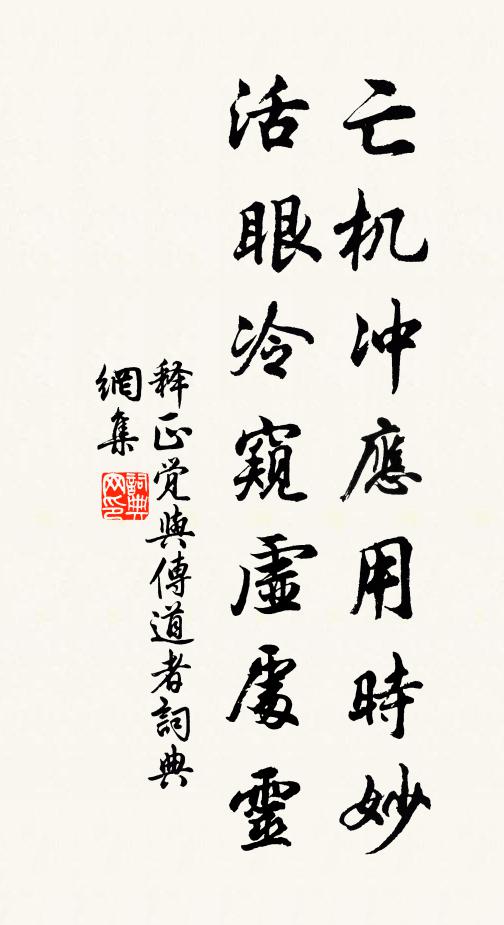 亡机冲應用時妙
活眼冷窺虛處靈
释正覚與傳道者詞典
網集
詞典
网印